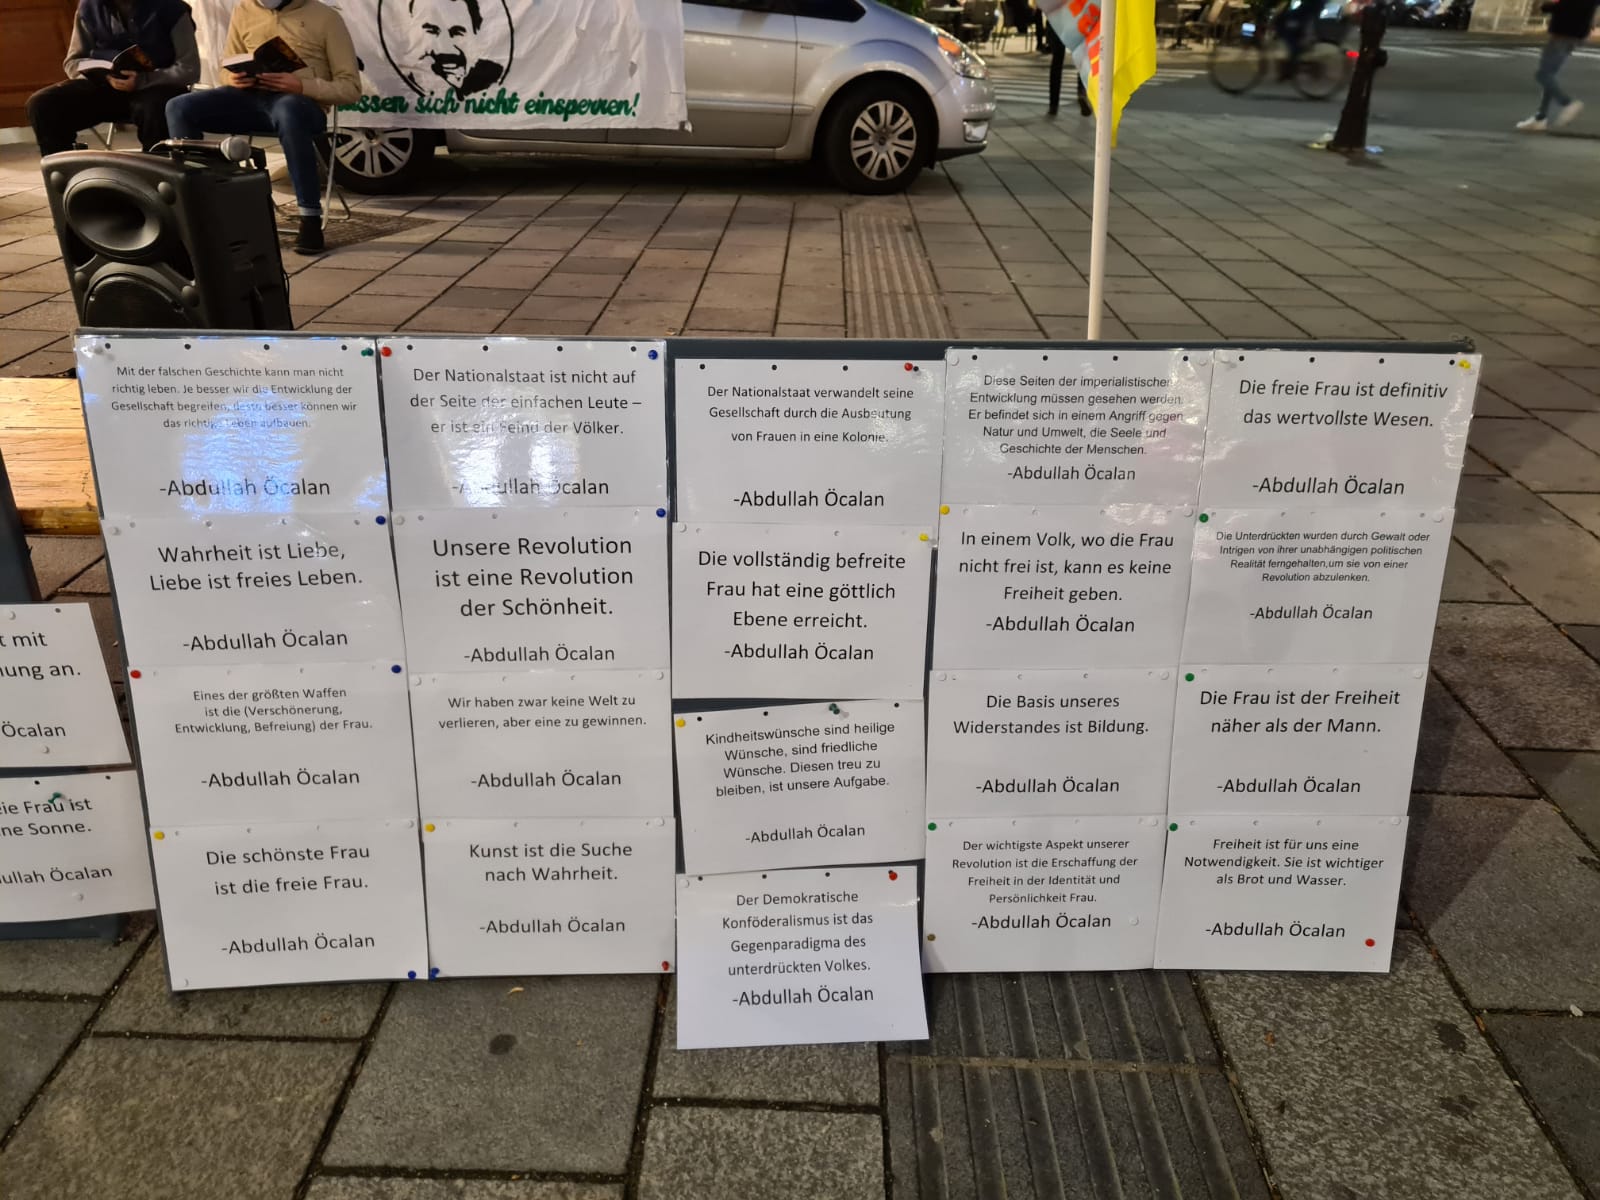 lassen sich nicht einsperren!
Mit der falschen Geschichte kann man nicht
richtig leben. Je besser wir die Entwicklung der
Gesellschaft begreifen, desto besser können wir
das richtige Leben aufbauen.
-Abdullah Öcalan
Der Nationalstaat ist nicht auf
der Seite der einfachen Leute –
er ist ein Feind der Völker.
-Abdullah Öcalan
Der Nationalstaat verwandelt seine
Gesellschaft durch die Ausbeutung
von Frauen in eine Kolonie.
-Abdullah Öcalan
Diese Seiten der imperialistischen
Entwicklung müssen gesehen werden.
Er befindet sich in einem Angriff gegen
Natur und Umwelt, die Seele und
Geschichte der Menschen.
-Abdullah Öcalan
Die freie Frau ist definitiv
das wertvollste Wesen.
-Abdullah Öcalan
Wahrheit ist Liebe,
Liebe ist freies Leben.
-Abdullah Öcalan
Unsere Revolution
ist eine Revolution
der Schönheit.
-Abdullah Öcalan
Die vollständig befreite
Frau hat eine göttlich
Ebene erreicht.
-Abdullah Öcalan
In einem Volk, wo die Frau
nicht frei ist, kann es keine
Freiheit geben.
-Abdullah Öcalan
Die Unterdrückten wurden durch Gewalt oder
Intrigen von ihrer unabhängigen politischen
Realität ferngehalten,um sie von einer
Revolution abzulenken.
-Abdullah Öcalan
Eines der größten Waffen
ist die (Verschönerung,
Entwicklung, Befreiung) der Frau.
-Abdullah Öcalan
Wir haben zwar keine Welt zu
verlieren, aber eine zu gewinnen.
-Abdullah Öcalan
Kindheitswünsche sind heilige
Wünsche, sind friedliche
Wünsche. Diesen treu zu
bleiben, ist unsere Aufgabe.
-Abdullah Öcalan
Die Basis unseres
Widerstandes ist Bildung.
-Abdullah Öcalan
Die Frau ist der Freiheit
näher als der Mann.
-Abdullah Öcalan
Die schönste Frau
ist die freie Frau.
-Abdullah Öcalan
Kunst ist die Suche
nach Wahrheit.
-Abdullah Öcalan
Der Demokratische
Konföderalismus ist das
Gegenparadigma des
unterdrückten Volkes.
-Abdullah Öcalan
Der wichtigste Aspekt unserer
Revolution ist die Erschaffung der
Freiheit in der Identität und
Persönlichkeit Frau.
-Abdullah Öcalan
Freiheit ist für uns eine
Notwendigkeit. Sie ist wichtiger
als Brot und Wasser.
-Abdullah Öcalan
mit
an.
Öcalan
Frau ist
Sonne.
Öcalan